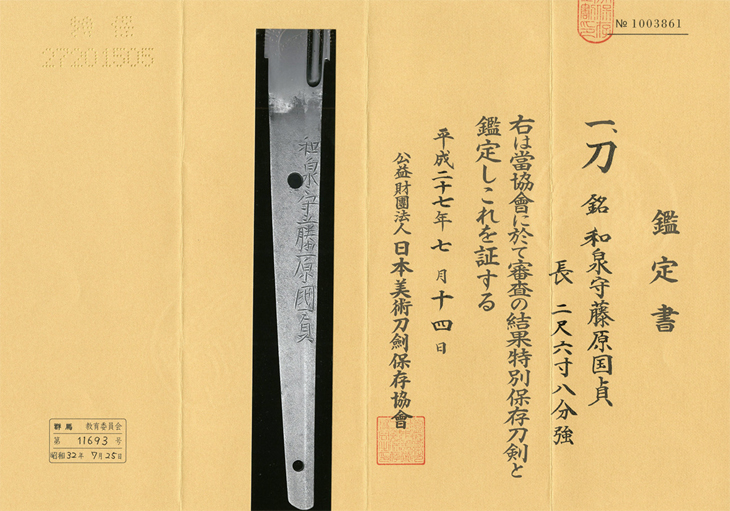 № 1003861
鑑定書
一、刀 銘 和泉守藤原国貞
長 二尺六寸八分強
右は當協會に於て審査の結果特別保存刀剣と
鑑定しこれを証する
平成二十七年七月十四日
公益財團法人 日本美術刀劍保存協會
和泉守藤原國貞
特保
27201505
群馬 教育委員会
第 11693 号
昭和32年 7月25日